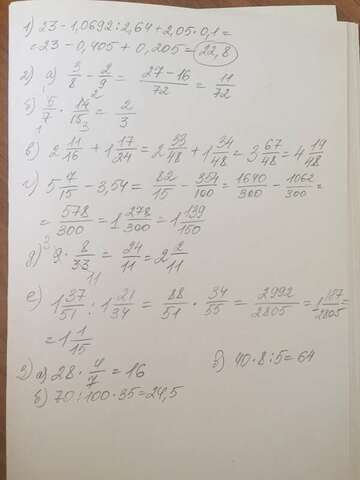 1) 23 - 1,0692 : 2,64 + 2,05 · 0,1 =
= 23 - 0,405 + 0,205 = 22,8
2) а) 3/8 - 2/9 = 27-16/72 = 11/72
б) 5/7 · 14/15 = 2/3
в) 2 11/16 + 1 17/24 = 2 33/48 + 1 34/48 = 3 67/48 = 4 19/48
г) 5 7/15 - 3,54 = 82/15 - 354/100 = 1640/300 - 1062/300 =
= 578/300 = 1 278/300 = 1 139/150
д) 9 · 8/33 = 24/11 = 2 2/11
е) 1 37/51 : 1 21/34 = 88/51 · 34/55 = 2992/2805 = 1 187/2805 =
= 1 1/15
3) а) 28 · 4/7 = 16 в) 40 · 8 : 5 = 64
б) 70 : 100 · 35 = 24,5